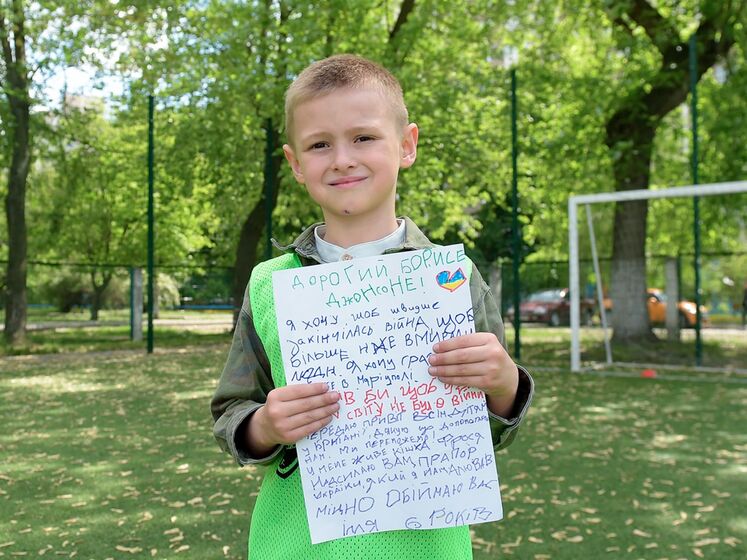 ДОРОГИЙ БОРИСЕ
ДЖОНСОНЕ!
Я ХОЧУ ЩОБ ШВИДШЕ
ЗАКІНЧІЛАСЬ ВІЙНА, ЩОБ
БІЛЬШЕ НЕ ВМИРАЛИ
ЛЮДИ. Я ХОЧУ ГРА
В МАРІУПОЛІ.
В БИ, ЩОБ У
СВІТУ НЕ БУЛО ВІЙНИ
ПЕРЕДАЮ ПРИВІТ ВСІМ ДІТЯМ
У БРИТАНІЇ! ДЯКУЮ ЩО ДОПОМОГА
НАМ МИ ПЕРЕМОЖЕМО!
У МЕНЕ ЖИВЕ КІШКА ФРОСЯ
НАДСИЛАЮ ВАМ ПРАПОР
УКРАЇНИ, ЯКИЙ Я НАМАЛЮВАВ
МІЦНО ОБІЙМАЮ ВАС
ІЛЛЯ 6 РОКІВ